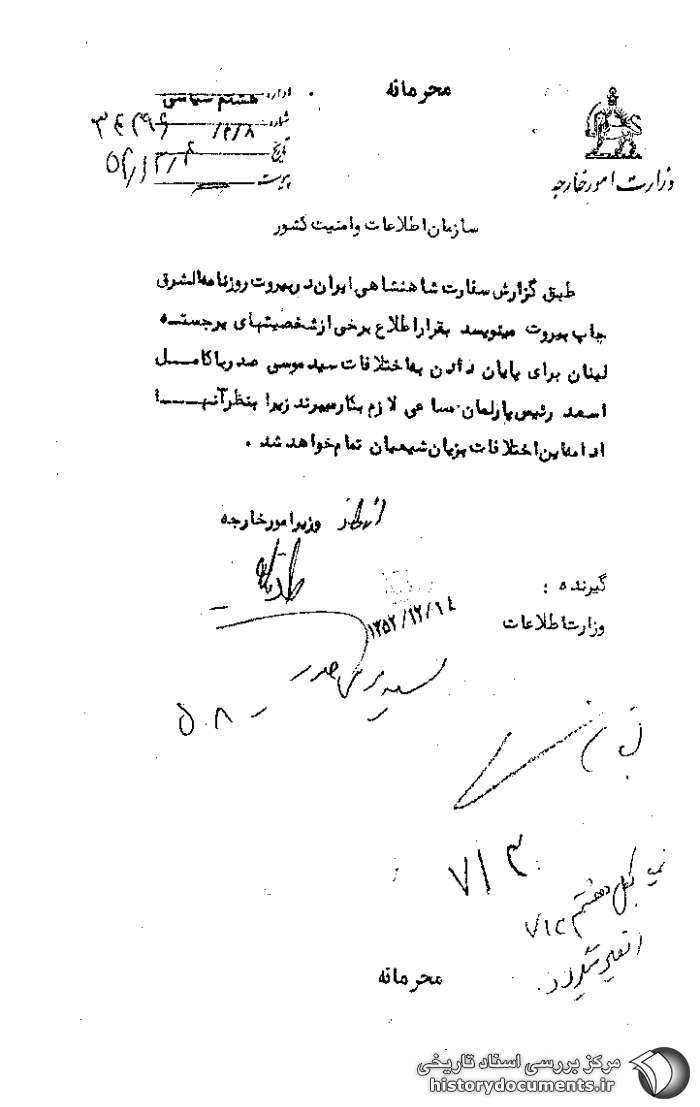 محرمانه
اداره هشتم سیاسی
شماره ۸/م/
تاریخ
پیوست
وزارت امور خارجه
سازمان اطلاعات و امنیت کشور
طبق گزارش سفارت شاهنشاهی ایران در بیروت روزنامه الشرق
چاپ بیروت مینویسد بقرار اطلاع برخی از شخصیتهای برجسته
لبنان برای پایان دادن به اختلافات سید موسی صدر با کامل
اسعد رئیس پارلمان مساعی لازم بکار میبرند زیرا بنظر آنها
ادامه این اختلافات بزیان شیعیان تمام خواهد شد .
از طرف وزیر امور خارجه
گیرنده :
وزارت اطلاعات
۱۳۵۲/۱۲/۱۴
سید موسی صدر
۵۰۸ -
۷۱۳
۷۱۲
محرمانه
مرکز بررسی اسناد تاریخی
historydocuments.ir